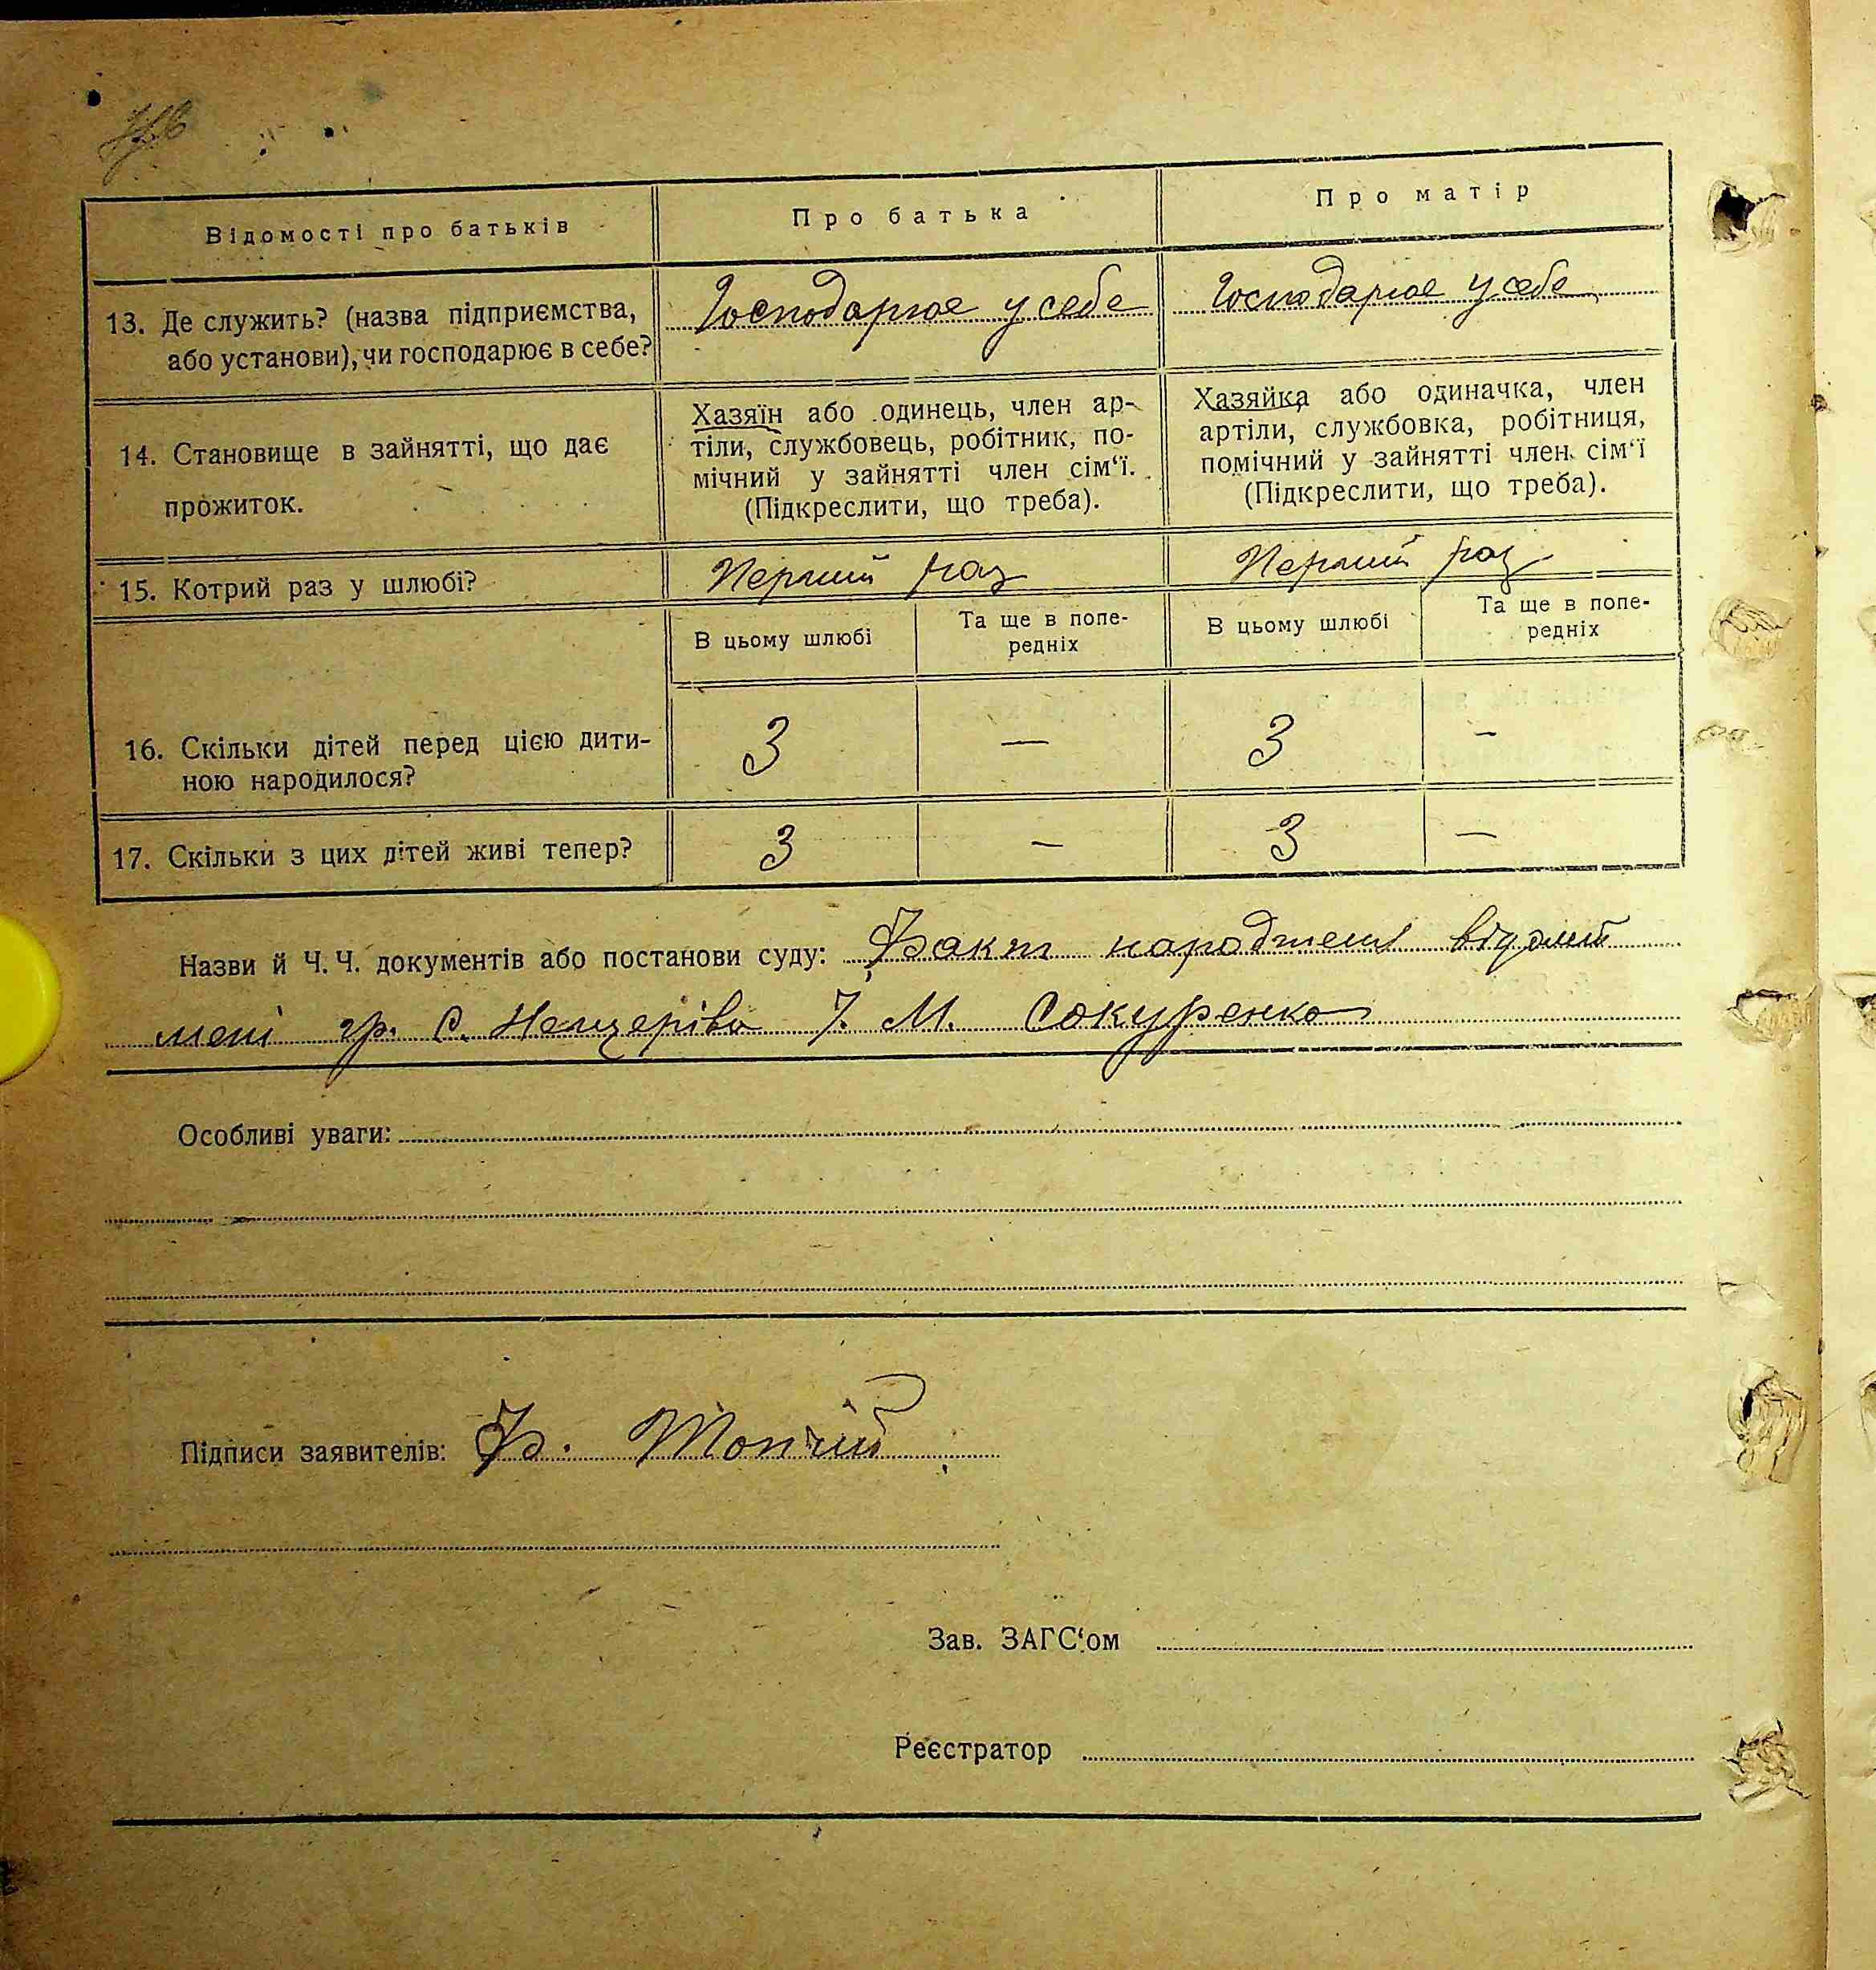 Відомості про батьків
Про батька
Про матір
13. Де служить? (назва підприємства,
або установи), чи господарює в себе?
Господарює у себе
Господарює у себе
14. Становище в зайнятті, що дає
прожиток.
Хазяїн або одинець, член ар-
тіли, службовець, робітник, по-
мічний у зайнятті член сім‘ї.
(Підкреслити, що треба).
Хазяйка або одиначка, член
артіли, службовка, робітниця,
помічний у зайнятті член сім‘ї
(Підкреслити, що треба).
15. Котрий раз у шлюбі?
Перший раз
Перший раз
В цьому шлюбі
Та ще в попе-
редніх
В цьому шлюбі
Та ще в попе-
редніх
16. Скільки дітей перед цією дити-
ною народилося?
3 — 3 —
17. Скільки з цих дітей живі тепер?
3 — 3 —
Назви й Ч. Ч. документів або постанови суду: Факт народження відомий
мені гр. с. Нещерів І. М. Сокуренко
Особливі уваги:
Підписи заявителів: Ф. Топчій
Зав. ЗАГС‘ом
Реєстратор